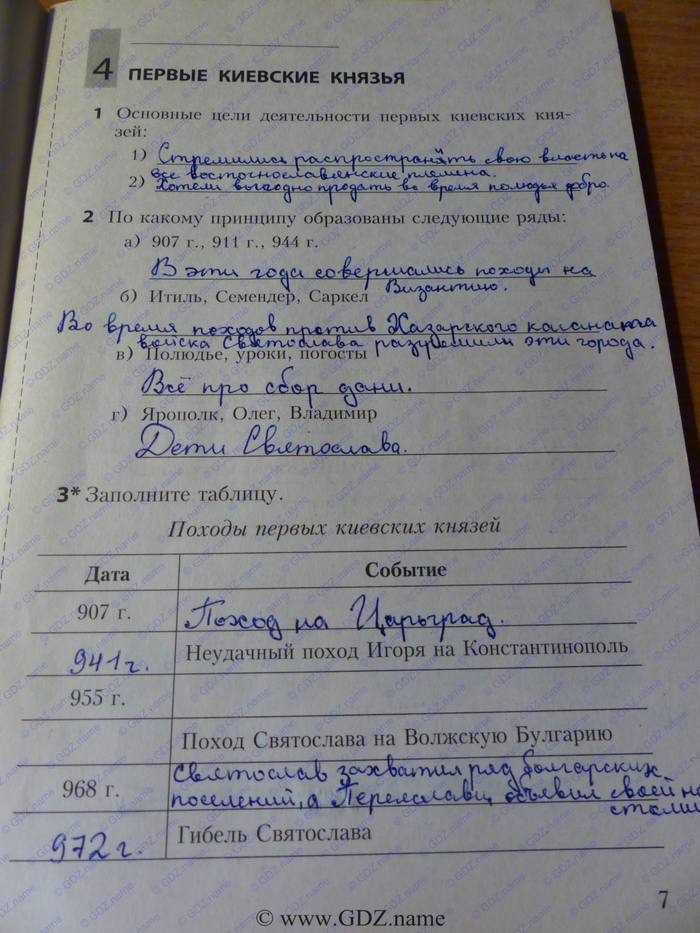 4 ПЕРВЫЕ КИЕВСКИЕ КНЯЗЬЯ
1 Основные цели деятельности первых киевских кня-
зей:
1) Стремились распространять свою власть на
все восточнославянские племена.
2) Хотели выгодно продать во время полюдья добро.
2 По какому принципу образованы следующие ряды:
а) 907 г., 911 г., 944 г.
В эти года совершались походы на
Византию.
б) Итиль, Семендер, Саркел
Во время походов против Хазарского каганата
войска Святослава разрушили эти города.
в) Полюдье, уроки, погосты
Всё про сбор дани.
г) Ярополк, Олег, Владимир
Дети Святослава.
3* Заполните таблицу.
Походы первых киевских князей
Дата Событие
907 г. Поход на Царьград.
941 г. Неудачный поход Игоря на Константинополь
955 г.
Поход Святослава на Волжскую Булгарию
Святослав захватил ряд болгарских
968 г. поселений, а Переяславец объявил своей но
столи
972 г. Гибель Святослава
7
© www.GDZ.name